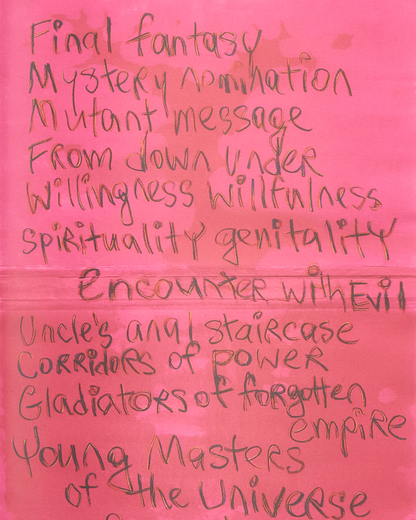 Final fantasy
Mystery nomination
Mutant message
From down under
Willingness willfulness
spirituality genitality
Encounter with Evil
Uncle's anal staircase
Corridors of power
Gladiators of forgotten
empire
Young Masters
of the Universe